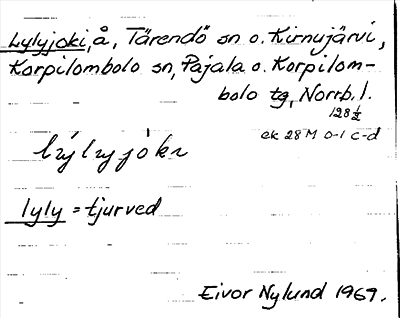 Lylyjoki, å, Tärendö sn o. Kirnujärvi,
Korpilombolo sn, Pajala o. Korpilom-
bolo tg, Norrb. l.
ek 28 M 0-1 c-d
lyly = tjurved
Eivor Nylund 1969.